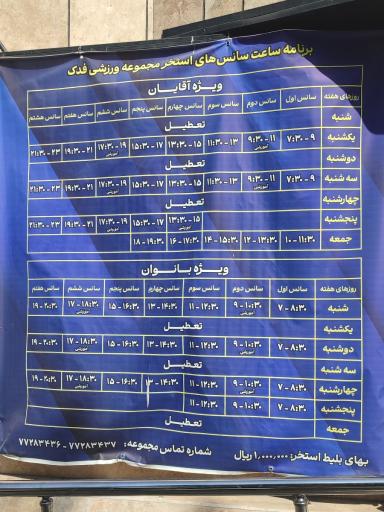 برنامه ساعت سانس‌های استخر مجموعه ورزشی فدک
ویژه آقایان
روزهای هفته سانس اول سانس دوم سانس سوم سانس چهارم سانس پنجم سانس ششم سانس هفتم سانس هشتم
شنبه تعطیل
یکشنبه ۷:۳۰ - ۹ ۹:۳۰ - ۱۱ آموزشی ۱۱:۳۰ - ۱۳ ۱۳:۳۰ - ۱۵ ۱۵:۳۰ - ۱۷ ۱۷:۳۰ - ۱۹ آموزشی ۱۹:۳۰ - ۲۱ ۲۱:۳۰ - ۲۳
دوشنبه تعطیل
سه شنبه ۷:۳۰ - ۹ ۹:۳۰ - ۱۱ آموزشی ۱۱:۳۰ - ۱۳ ۱۳:۳۰ - ۱۵ ۱۵:۳۰ - ۱۷ ۱۷:۳۰ - ۱۹ آموزشی ۱۹:۳۰ - ۲۱ ۲۱:۳۰ - ۲۳
چهارشنبه تعطیل
پنجشنبه ۱۳:۳۰ - ۱۵ آموزشی ۱۵:۳۰ - ۱۷ ۱۷:۳۰ - ۱۹ آموزشی ۱۹:۳۰ - ۲۱ ۲۱:۳۰ - ۲۳
جمعه ۱۰ - ۱۱:۳۰ ۱۲ - ۱۳:۳۰ ۱۴ - ۱۵:۳۰ ۱۶ - ۱۷:۳۰ ۱۸ - ۱۹:۳۰
ویژه بانوان
روزهای هفته سانس اول سانس دوم سانس سوم سانس چهارم سانس پنجم سانس ششم سانس هفتم
شنبه ۷ - ۸:۳۰ ۹ - ۱۰:۳۰ آموزشی ۱۱ - ۱۲:۳۰ ۱۳ - ۱۴:۳۰ ۱۵ - ۱۶:۳۰ ۱۷ - ۱۸:۳۰ آموزشی ۱۹ - ۲۰:۳۰
یکشنبه تعطیل
دوشنبه ۷ - ۸:۳۰ ۹ - ۱۰:۳۰ آموزشی ۱۱ - ۱۲:۳۰ ۱۳ - ۱۴:۳۰ ۱۵ - ۱۶:۳۰ ۱۷ - ۱۸:۳۰ آموزشی ۱۹ - ۲۰:۳۰
سه شنبه تعطیل
چهارشنبه ۷ - ۸:۳۰ ۹ - ۱۰:۳۰ آموزشی ۱۱ - ۱۲:۳۰ ۱۳ - ۱۴:۳۰ ۱۵ - ۱۶:۳۰ ۱۷ - ۱۸:۳۰ آموزشی ۱۹ - ۲۰:۳۰
پنجشنبه ۷ - ۸:۳۰ ۹ - ۱۰:۳۰ آموزشی ۱۱ - ۱۲:۳۰
جمعه تعطیل
بهای بلیط استخر: ۱,۰۰۰,۰۰۰ ریال شماره تماس مجموعه: ۷۷۲۸۳۴۳۷ - ۷۷۲۸۳۴۳۶